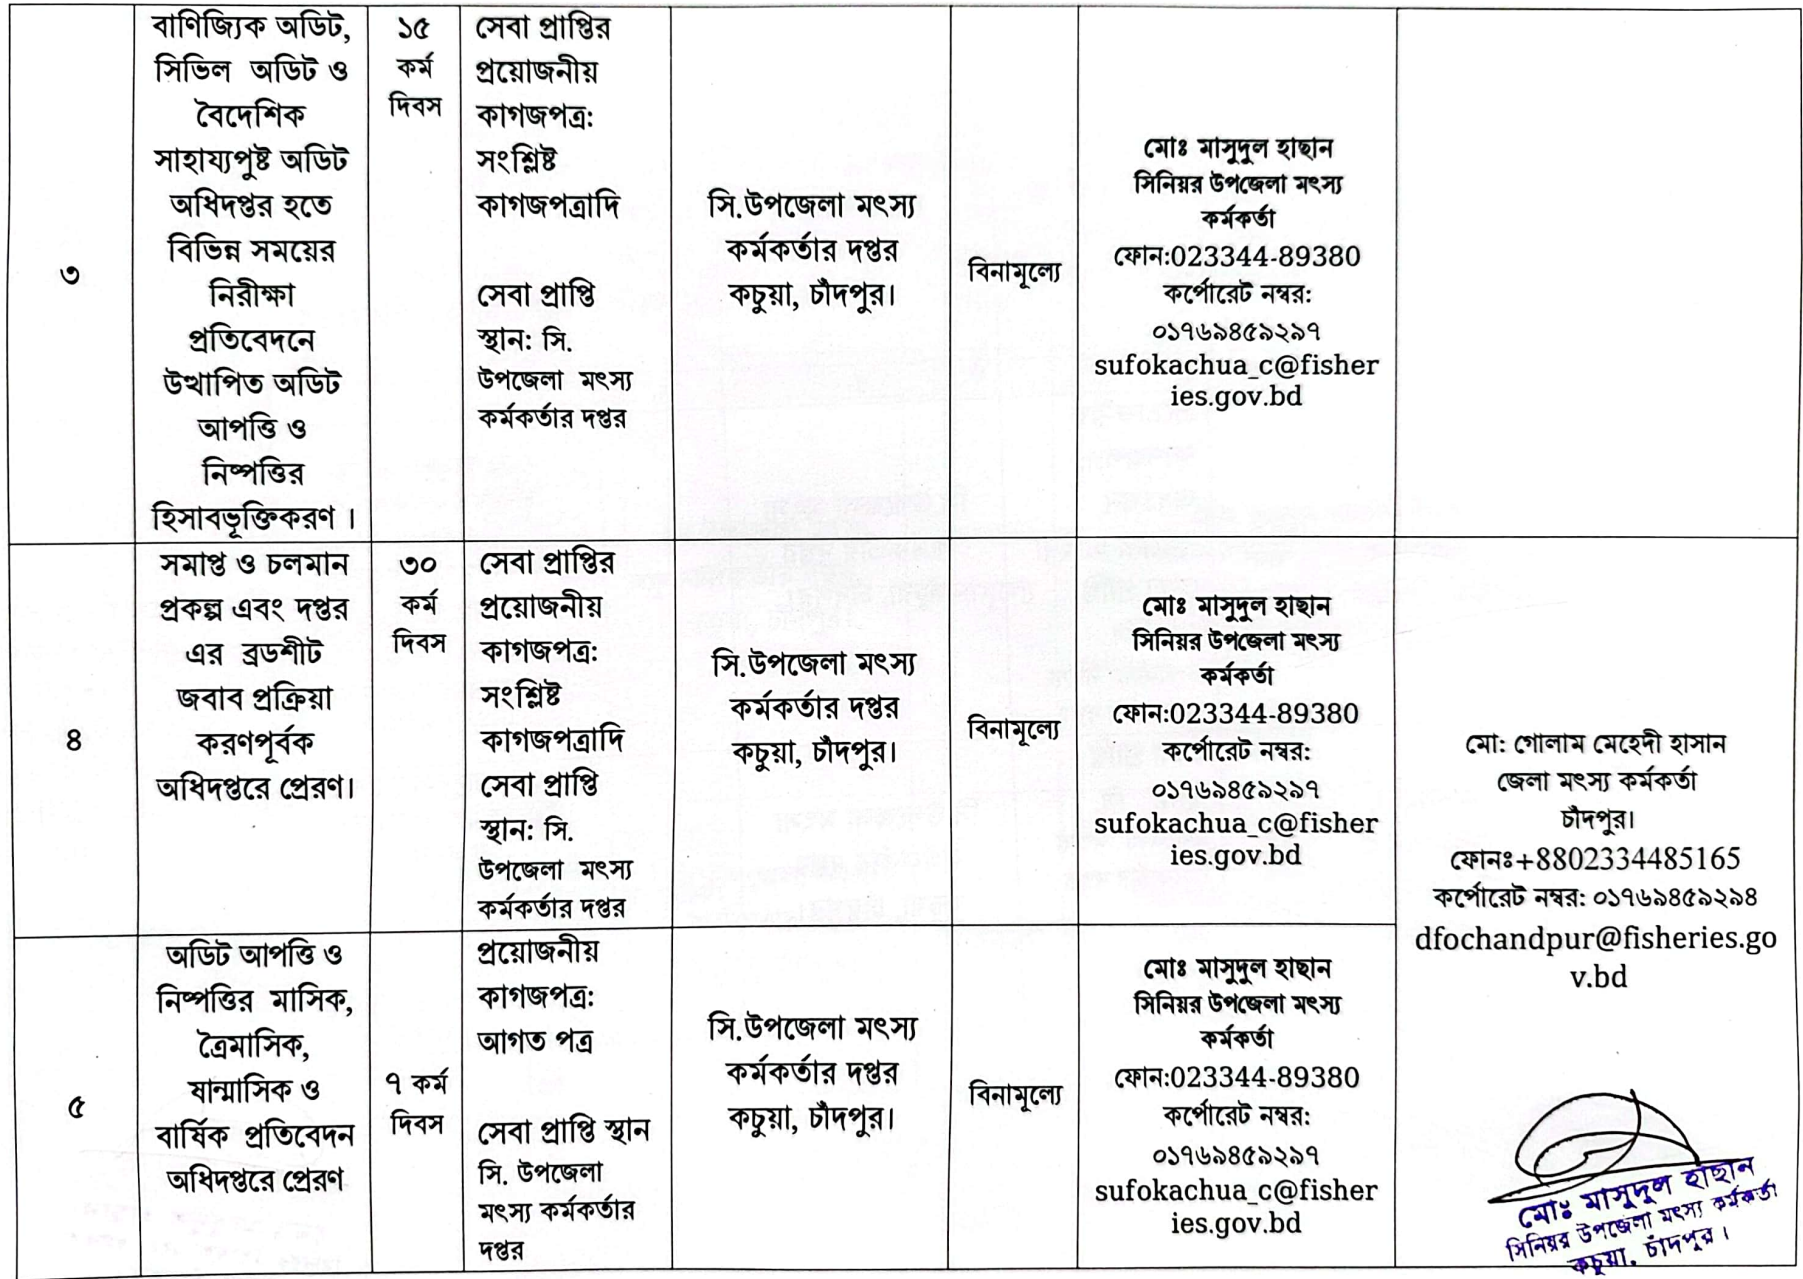 ৩
বাণিজ্যিক অডিট,
সিভিল অডিট ও
বৈদেশিক
সাহায্যপুষ্ট অডিট
অধিদপ্তর হতে
বিভিন্ন সময়ের
নিরীক্ষা
প্রতিবেদনে
উত্থাপিত অডিট
আপত্তি ও
নিষ্পত্তির
হিসাবভূক্তিকরণ।
১৫
কর্ম
দিবস
সেবা প্রাপ্তির
প্রয়োজনীয়
কাগজপত্র:
সংশ্লিষ্ট
কাগজপত্রাদি
সেবা প্রাপ্তি
স্থান: সি.
উপজেলা মৎস্য
কর্মকর্তার দপ্তর
সি.উপজেলা মৎস্য
কর্মকর্তার দপ্তর
কচুয়া, চাঁদপুর।
বিনামূল্যে
মোঃ মাসুদুল হাছান
সিনিয়র উপজেলা মৎস্য
কর্মকর্তা
ফোন:023344-89380
কর্পোরেট নম্বর:
০১৭৬৯৪৫৯২৯৭
sufokachua_c@fisher
ies.gov.bd
৪
সমাপ্ত ও চলমান
প্রকল্প এবং দপ্তর
এর ব্রডশীট
জবাব প্রক্রিয়া
করণপূর্বক
অধিদপ্তরে প্রেরণ।
৩০
কর্ম
দিবস
সেবা প্রাপ্তির
প্রয়োজনীয়
কাগজপত্র:
সংশ্লিষ্ট
কাগজপত্রাদি
সেবা প্রাপ্তি
স্থান: সি.
উপজেলা মৎস্য
কর্মকর্তার দপ্তর
সি.উপজেলা মৎস্য
কর্মকর্তার দপ্তর
কচুয়া, চাঁদপুর।
বিনামূল্যে
মোঃ মাসুদুল হাছান
সিনিয়র উপজেলা মৎস্য
কর্মকর্তা
ফোন:023344-89380
কর্পোরেট নম্বর:
০১৭৬৯৪৫৯২৯৭
sufokachua_c@fisher
ies.gov.bd
মো: গোলাম মেহেদী হাসান
জেলা মৎস্য কর্মকর্তা
চাঁদপুর।
ফোনঃ+8802334485165
কর্পোরেট নম্বর: ০১৭৬৯৪৫৯২৯৪
dfochandpur@fisheries.go
v.bd
৫
অডিট আপত্তি ও
নিষ্পত্তির মাসিক,
ত্রৈমাসিক,
ষান্মাসিক ও
বার্ষিক প্রতিবেদন
অধিদপ্তরে প্রেরণ
৭ কর্ম
দিবস
প্রয়োজনীয়
কাগজপত্র:
আগত পত্র
সেবা প্রাপ্তি স্থান
সি. উপজেলা
মৎস্য কর্মকর্তার
দপ্তর
সি.উপজেলা মৎস্য
কর্মকর্তার দপ্তর
কচুয়া, চাঁদপুর।
বিনামূল্যে
মোঃ মাসুদুল হাছান
সিনিয়র উপজেলা মৎস্য
কর্মকর্তা
ফোন:023344-89380
কর্পোরেট নম্বর:
০১৭৬৯৪৫৯২৯৭
sufokachua_c@fisher
ies.gov.bd
মোঃ মাসুদুল হাছান
সিনিয়র উপজেলা মৎস্য কর্মকর্তা
কচুয়া, চাঁদপুর।